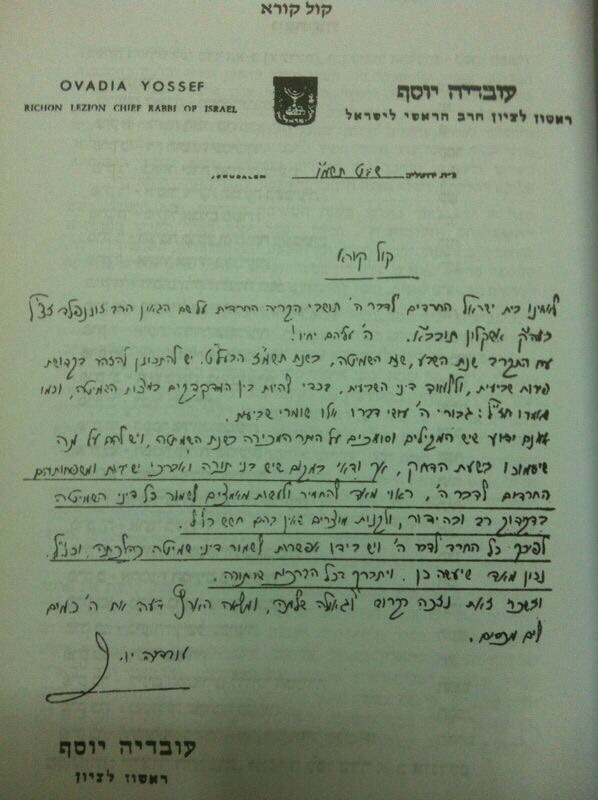 קול קורא
OVADIA YOSSEF
RICHON LEZION CHIEF RABBI OF ISRAEL
עובדיה יוסף
ראשון לציון הרב הראשי לישראל
ישראל
JERUSALEM, שבט תשמ"ו בית ירושלים
קול קורא
לאחינו בית ישראל החרדים לדבר ה' תושבי הקריה החרדית על שם הגאון הרב זוננפלד זצ"ל
בעה"ק אשקלון תובב"א. ה' עליהם יחיו!
עם התקרב שנת השבע, שנת השמיטה, בשנת תשמ"ז הבעל"ט. יש להתכונן להזהר בקדושת
פירות שביעית, וללמוד דיני השביעית, בכדי להיות בין המדקדקים במצות השמיטה, וכמו
שאמרו חז"ל: גבורי כח עושי דברו אלו שומרי שביעית.
אמנם ידוע שיש המקילים וסומכים על התר המכירה בשנת השמיטה, ויש להם על מה
שיסמוכו בשעת הדחק, אך ודאי במקום שיש בני תורה ואברכי ישיבות ומשפחותיהם
החרדים לדבר ה', ראוי מאד להחמיר ולעשות מאמצים לשמור כל דיני השמיטה
בדקדוק רב ובהידור, ולקנות מוצרים שאין בהם חשש כלל.
לפיכך כל החרד לדבר ה' ויש בידו אפשרות לשמור דיני שמיטה כהלכתה, וכנ"ל.
נכון מאד שיעשה כן. ויתברך בכל הברכות שבתורה.
ובשכר זאת נזכה בקרוב לגאולה שלמה, ומלאה הארץ דעה את ה' כמים
לים מכסים.
עובדיה יו.
עובדיה יוסף
ראשון לציון